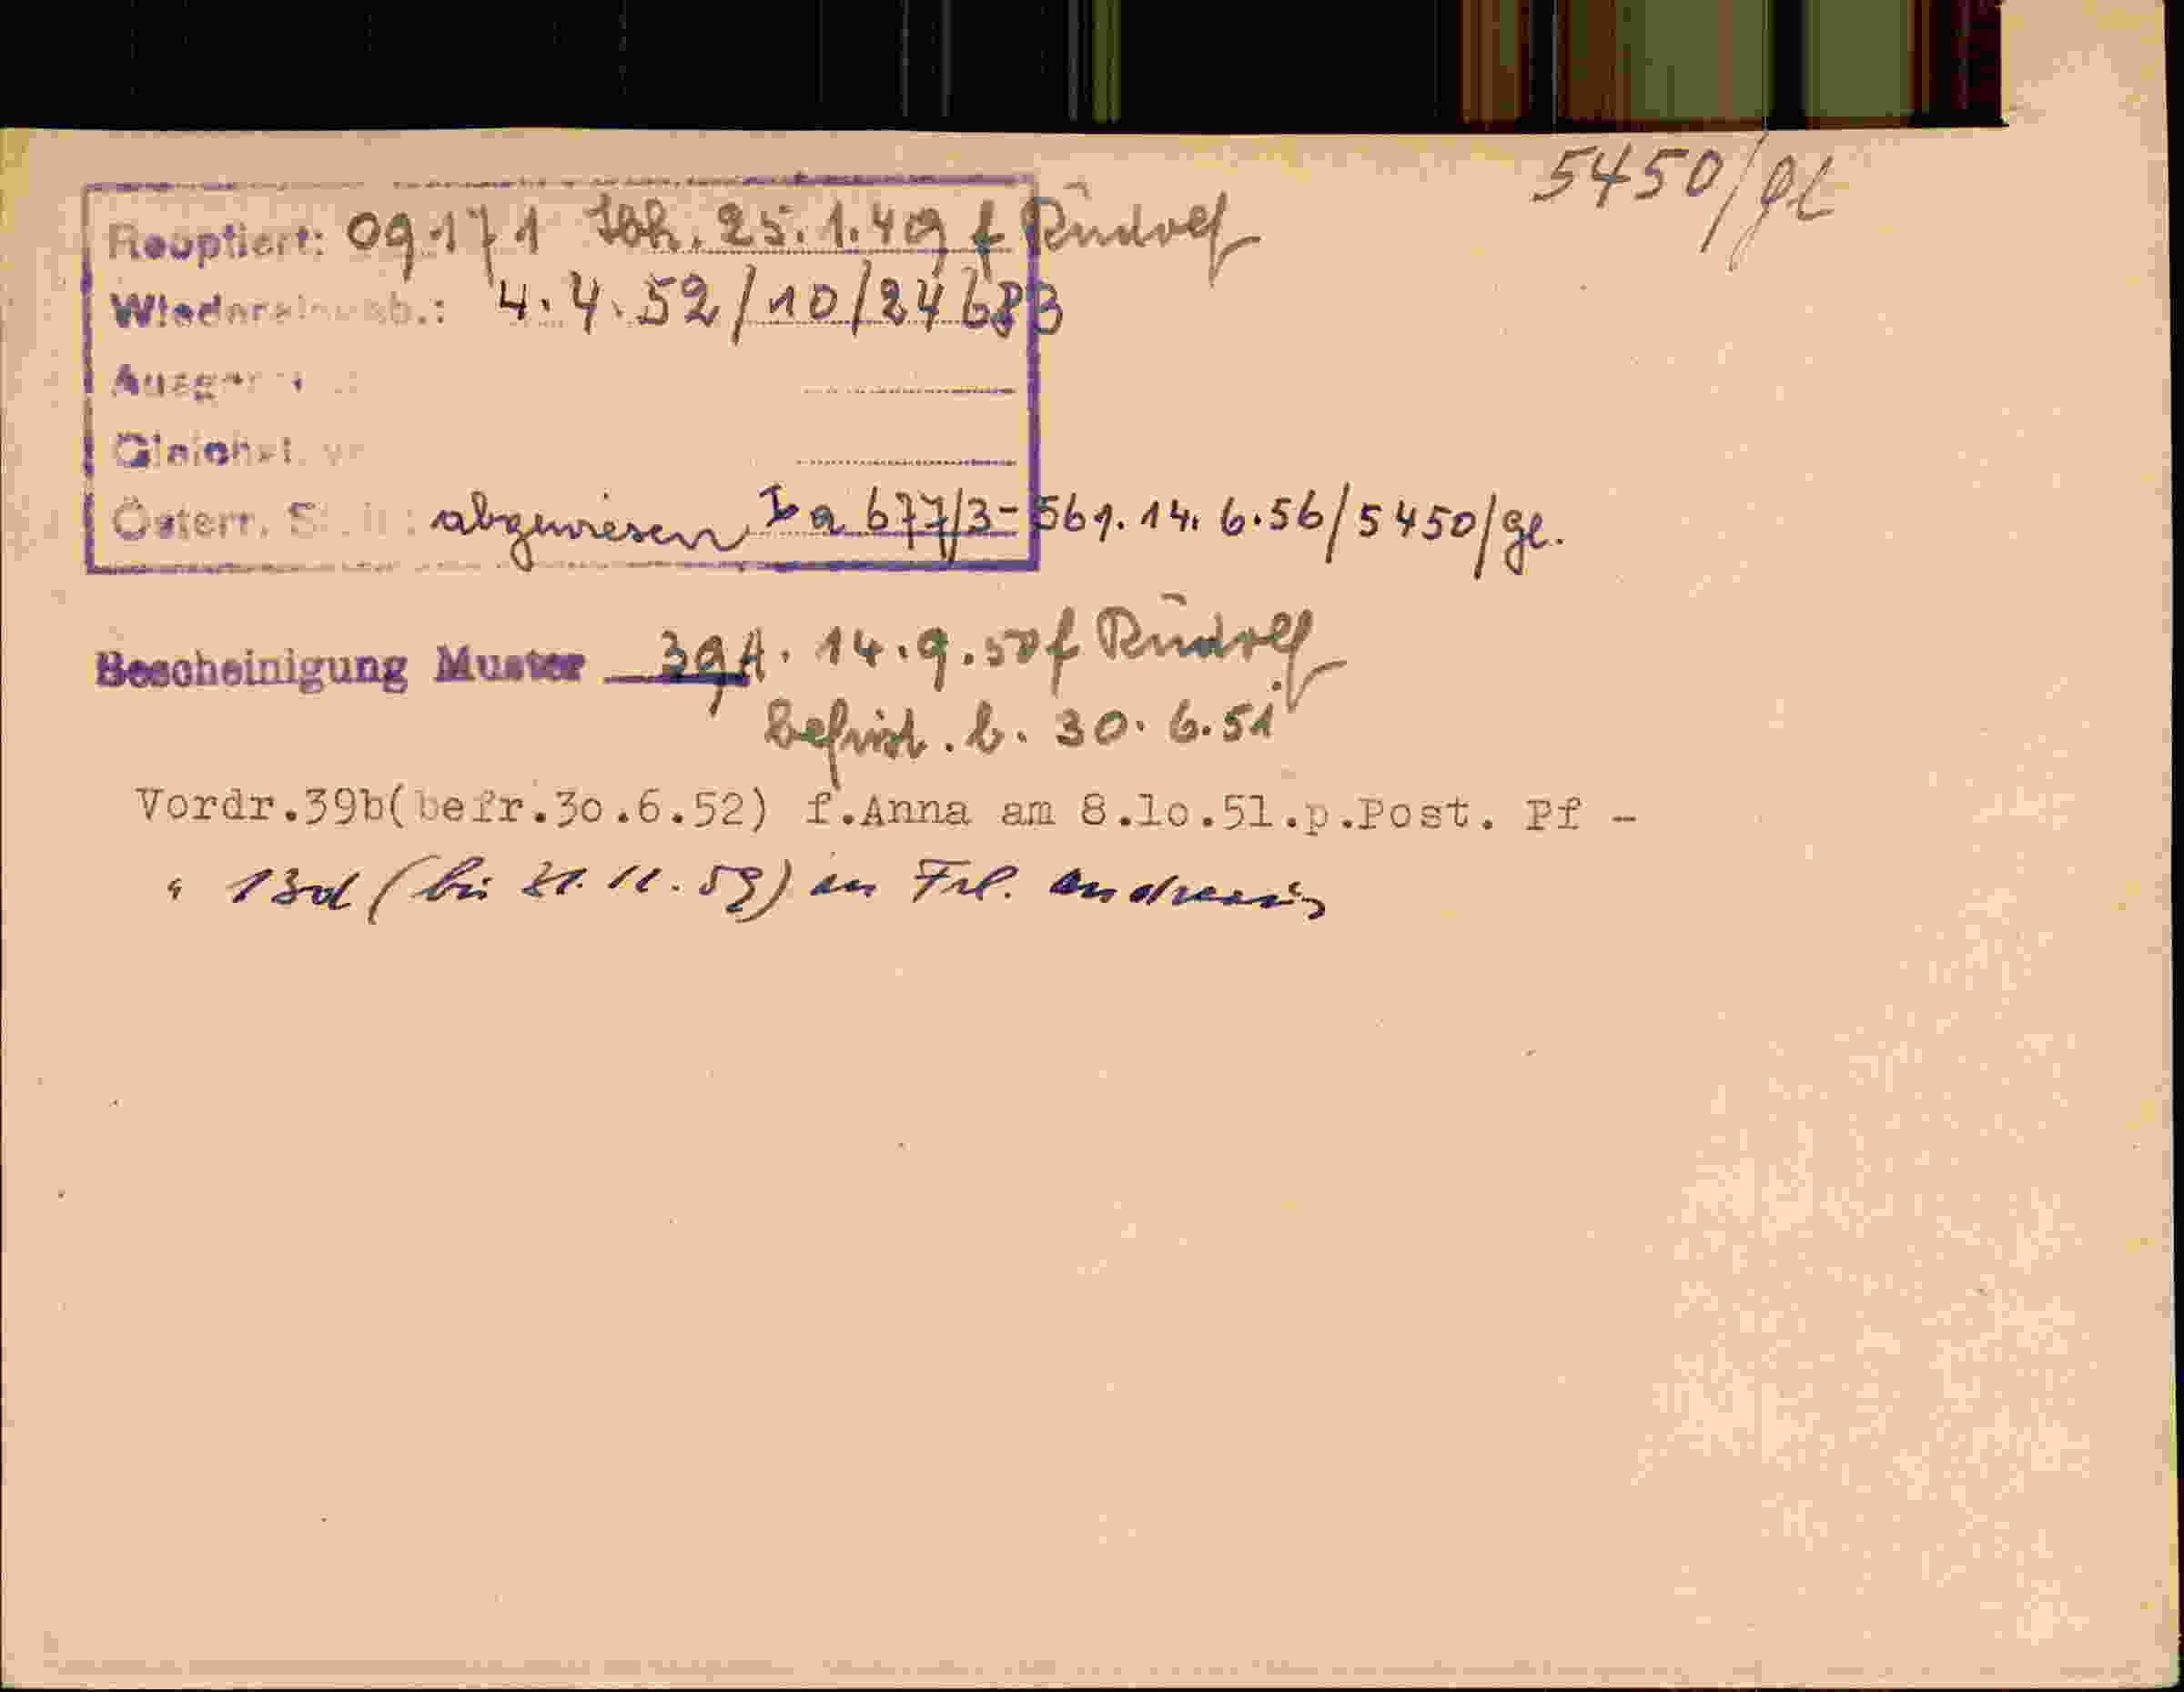 5450/gl
Reoptiert: 09171 Ibk. 25.1.49 f Rudolf
4.4.52/10/24683
Österr. abgewiesen Ia 677/3-561. 14.6.56/5450/gl.
Bescheinigung Muster 39A. 14.9.50 f Rudolf
Befrist. b. 30.6.51
Vordr.39b(befr.30.6.52) f.Anna am 8.lo.51.p.Post. Pf -
" 13d (bis 21.11.59) an Frl.